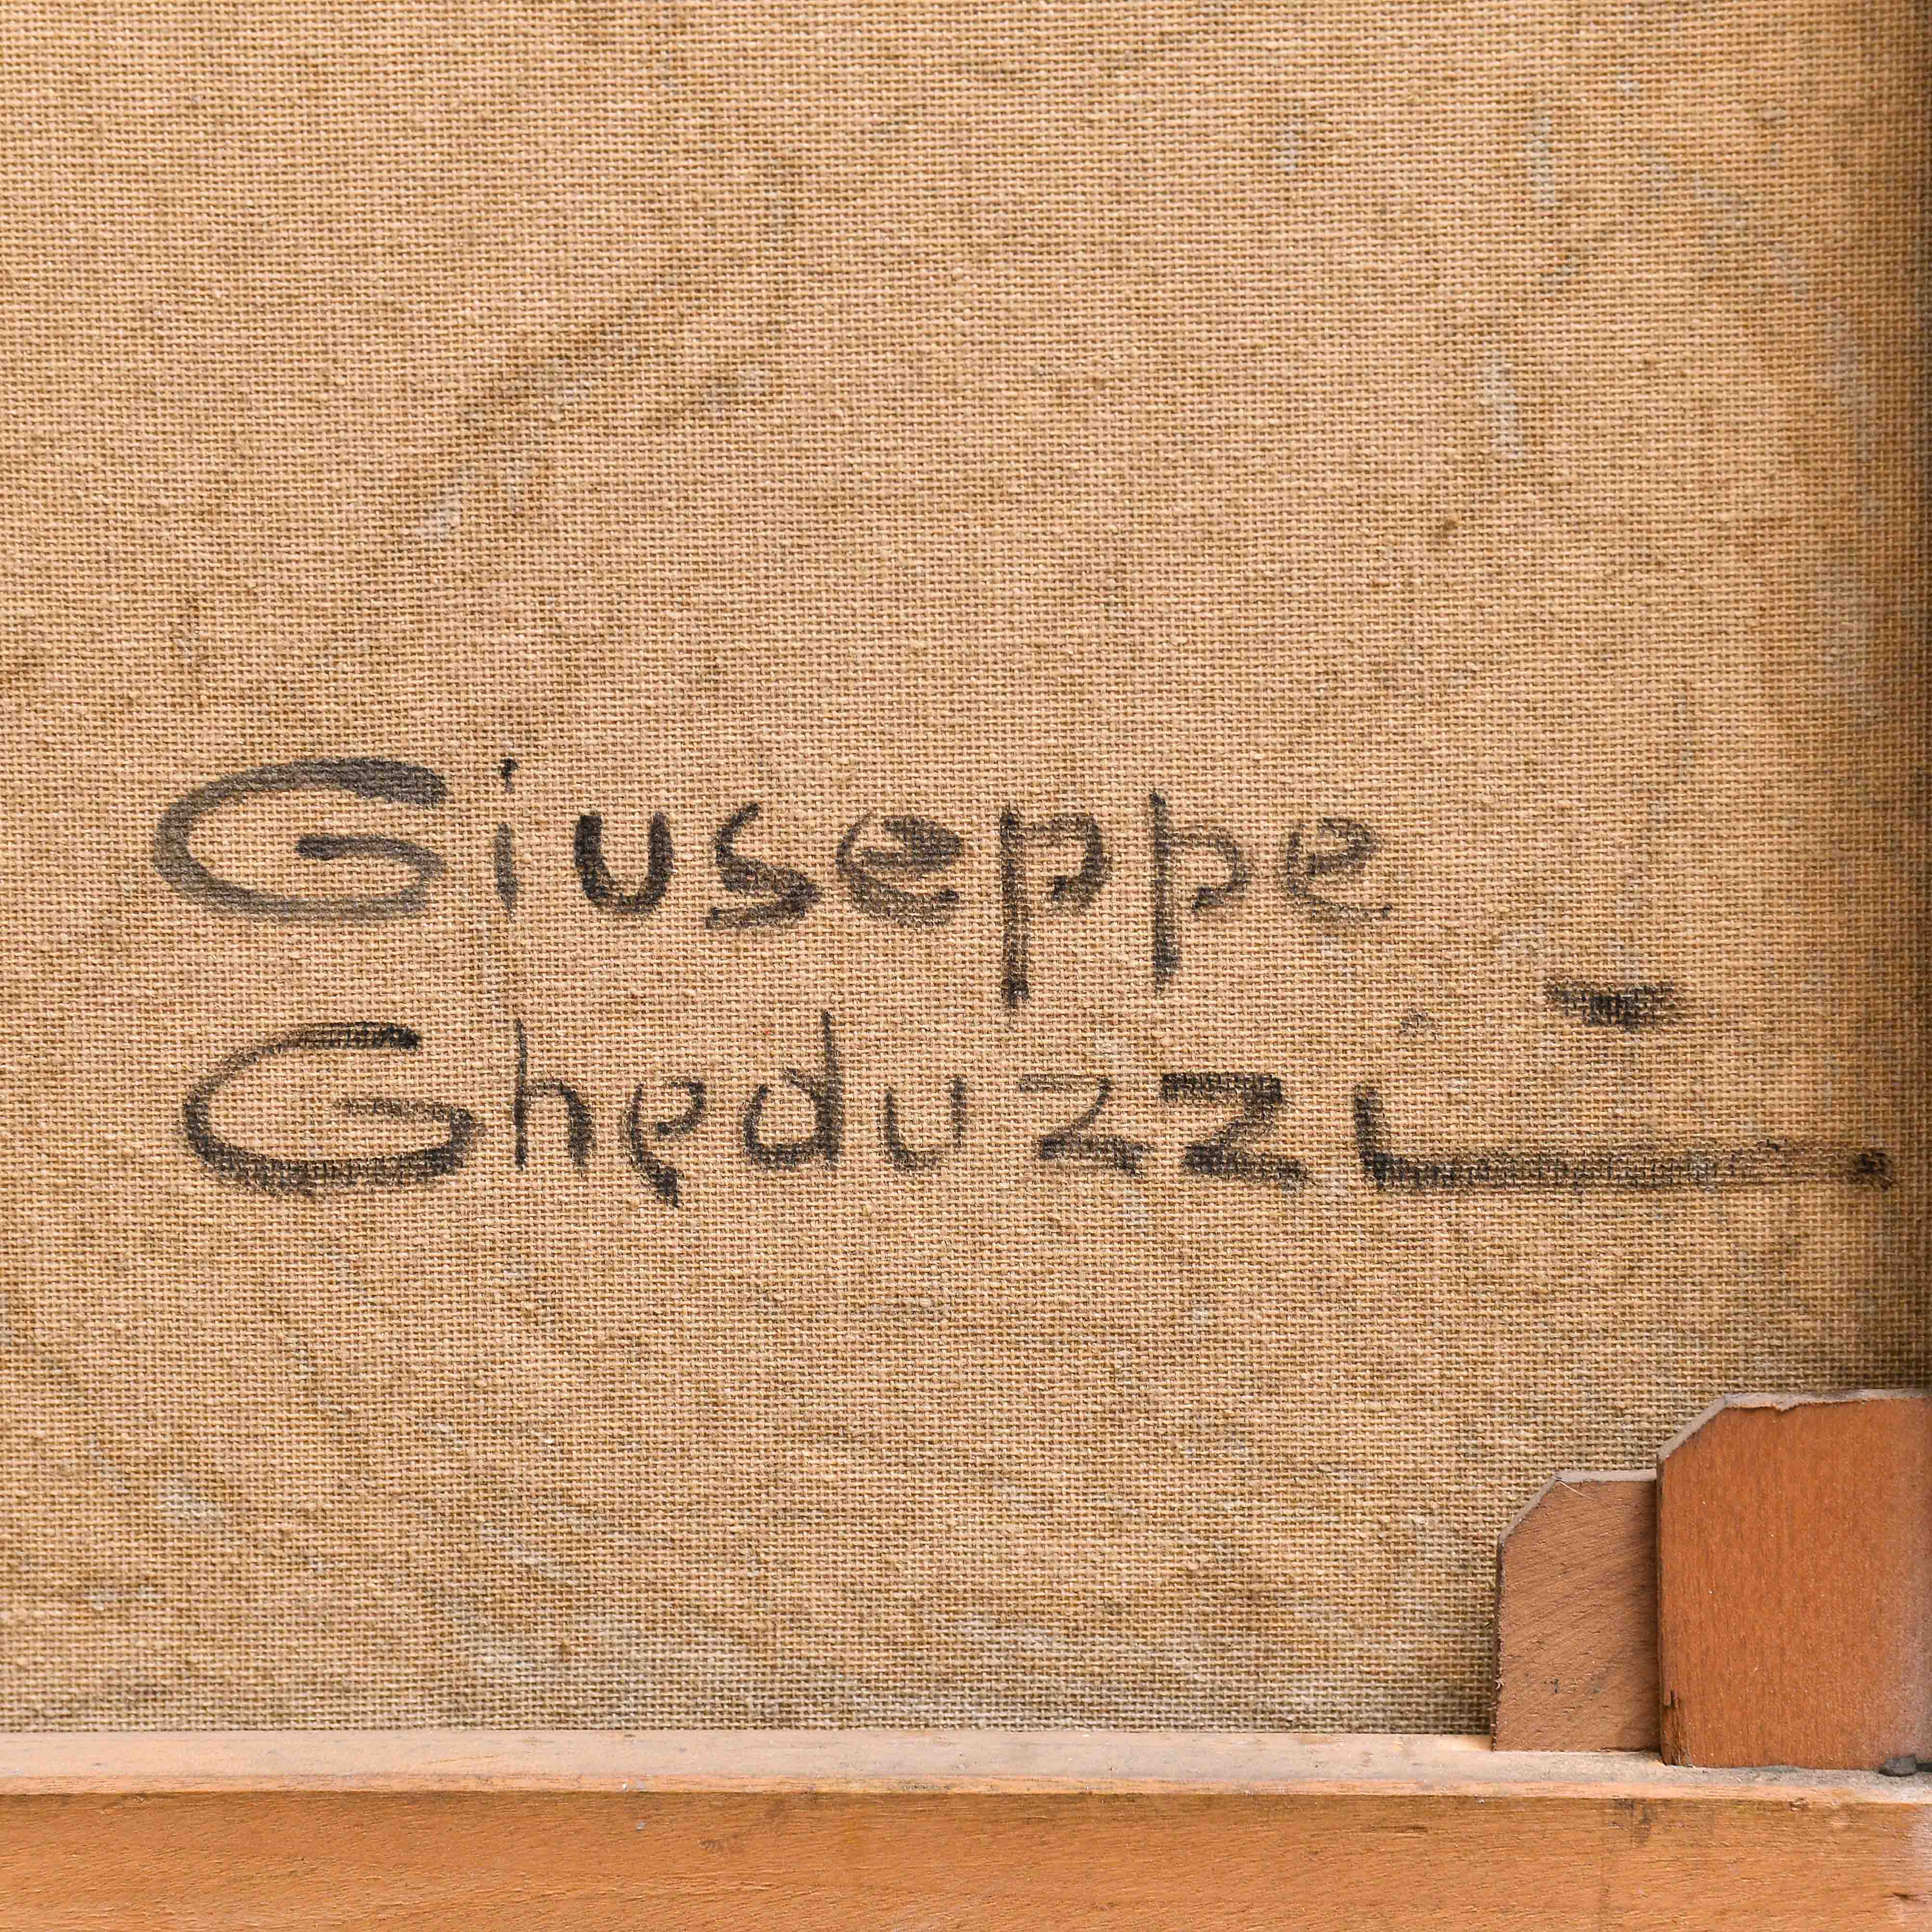 Giuseppe
Gheduzzi